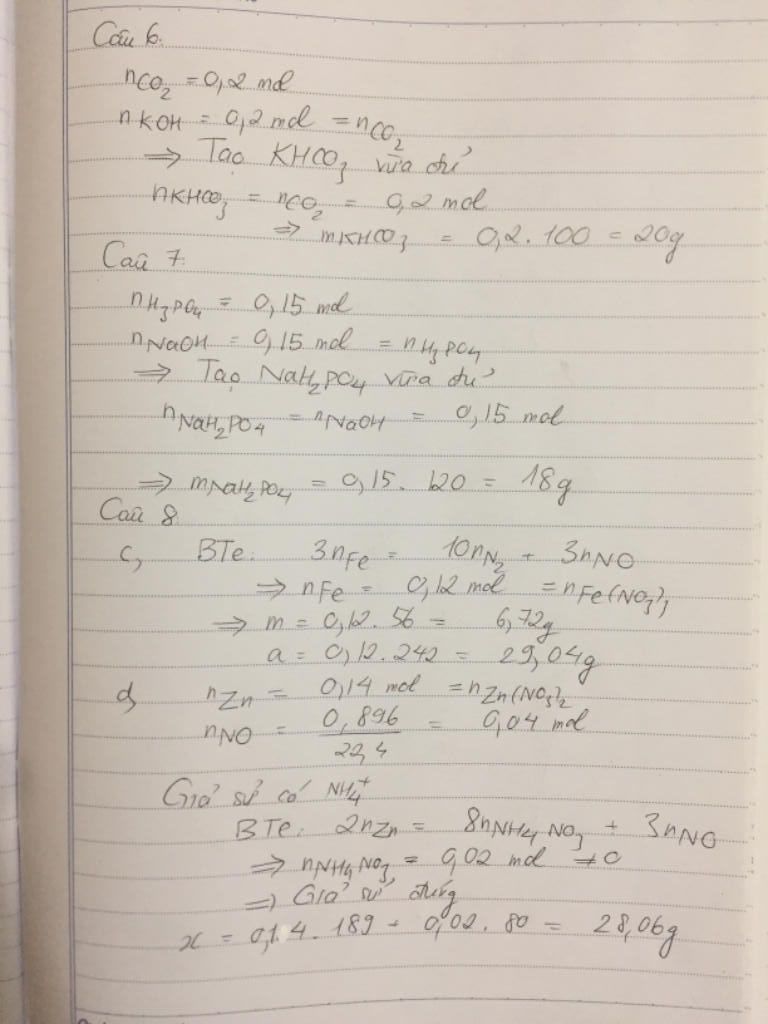 Câu 6.
nCO₂ = 0,2 mol
nKOH = 0,2 mol = nCO₂
⇒ Tạo KHCO₃ vừa đủ
nKHCO₃ = nCO₂ = 0,2 mol
⇒ mKHCO₃ = 0,2.100 = 20g
Câu 7.
nH₃PO₄ = 0,15 mol
nNaOH = 0,15 mol = nH₃PO₄
⇒ Tạo NaH₂PO₄ vừa đủ
nNaH₂PO₄ = nNaOH = 0,15 mol
⇒ mNaH₂PO₄ = 0,15. 120 = 18g
Câu 8.
c, BTe: 3nFe = 10nN₂ + 3nNO
⇒ nFe = 0,12 mol = nFe(NO₃)₃
⇒ m = 0,12.56 = 6,72g
a = 0,12.242 = 29,04g
d, nZn = 0,14 mol = nZn(NO₃)₂
nNO = 0,896/22,4 = 0,04 mol
Giả sử có NH₄⁺
BTe: 2nZn = 8nNH₄NO₃ + 3nNO
⇒ nNH₄NO₃ = 0,02 mol ≠ 0
⇒ Giả sử đúng
x = 0,14.189 + 0,02.80 = 28,06g